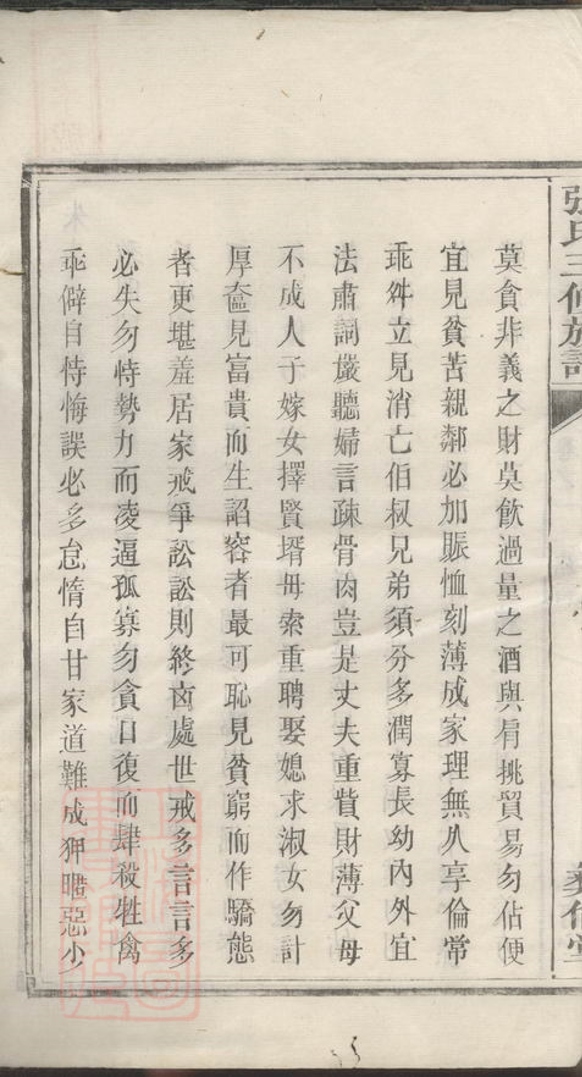 張氏三修族譜
莫貪非義之財莫飲過量之酒與肩挑貿易勿佔便
宜見貧苦親鄰必加賑恤刻薄成家理無久享倫常
乖舛立見消亡伯叔兄弟須分多潤寡長幼內外宜
法肅詞嚴聽婦言疎骨肉豈是丈夫重貲財薄父母
不成人子嫁女擇賢壻毋索重聘娶媳求淑女勿計
厚奩見富貴而生諂容者最可恥見貧窮而作驕態
者更堪羞居家戒爭訟訟則終凶處世戒多言言多
必失勿恃勢力而凌逼孤寡勿貪口復而肆殺牲禽
乖僻自恃悔誤必多怠惰自甘家道難成狎暱惡少